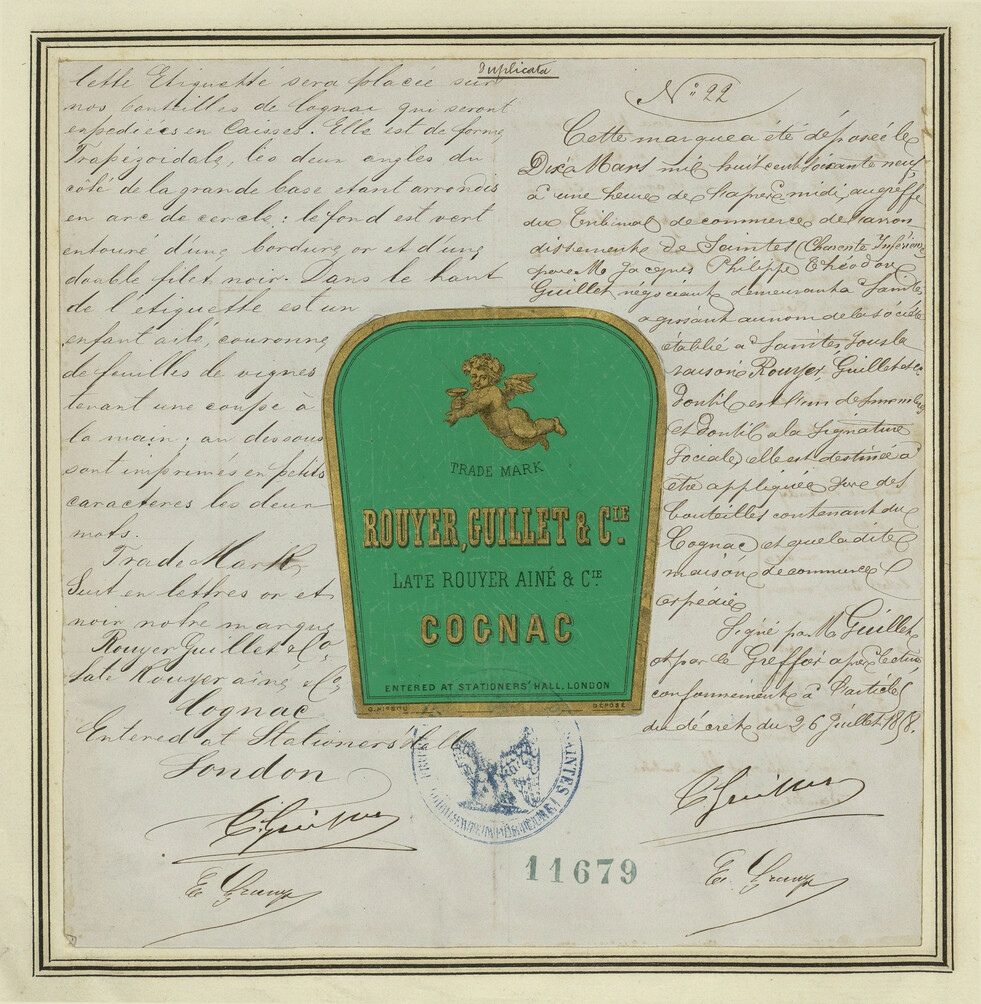 Duplicata
Cette Etiquette sera placée sur
nos bouteilles de Cognac qui seront
expediées en Caisses. Elle est de forme
Trapézoidale, les deux angles du
côté de la grande base etant arrondis
en arc de cercle : le fond est vert
entouré d'une bordure or et d'un
double filet noir. Dans le haut
de l'étiquette est un
enfant ailé, couronné
de feuilles de vignes
tenant une coupe à
la main ; au dessous
sont imprimés en petits
caracteres les deux
mots.
Trade Mark
Suit en lettres or et
noir notre marque
Rouyer Guillet & Co
Late Rouyer ainé & Co,
Cognac
Entered at Stationers' Hall
London
C. Guillet
N° 22
Cette marque a été déposée le
Dix Mars mil huit cent soixante neuf
à une heure de l'après midi, au greffe
du Tribunal de commerce de l'arron
dissement de Saintes (Charente Inférieure)
par M Jacques Philippe Théodore
Guillet négociant demeurant à Saintes
agissant au nom de la société
établie à Saintes, sous la
raison Rouyer, Guillet et Co
dont il est l'un des membres
et dont il a la signature
sociale, elle est destinée à
être appliquée sur des
bouteilles contenant du
Cognac et que la dite
maison de commerce
expédie
Signé par M Guillet
et par le Greffier après lecture
conformément à l'article
du décret du 26 Juillet 1858.
C. Guillet
TRADE MARK
ROUYER, GUILLET & CIE.
LATE ROUYER AINÉ & CIE.
COGNAC
ENTERED AT STATIONERS' HALL. LONDON
DÉPOSÉ
11679